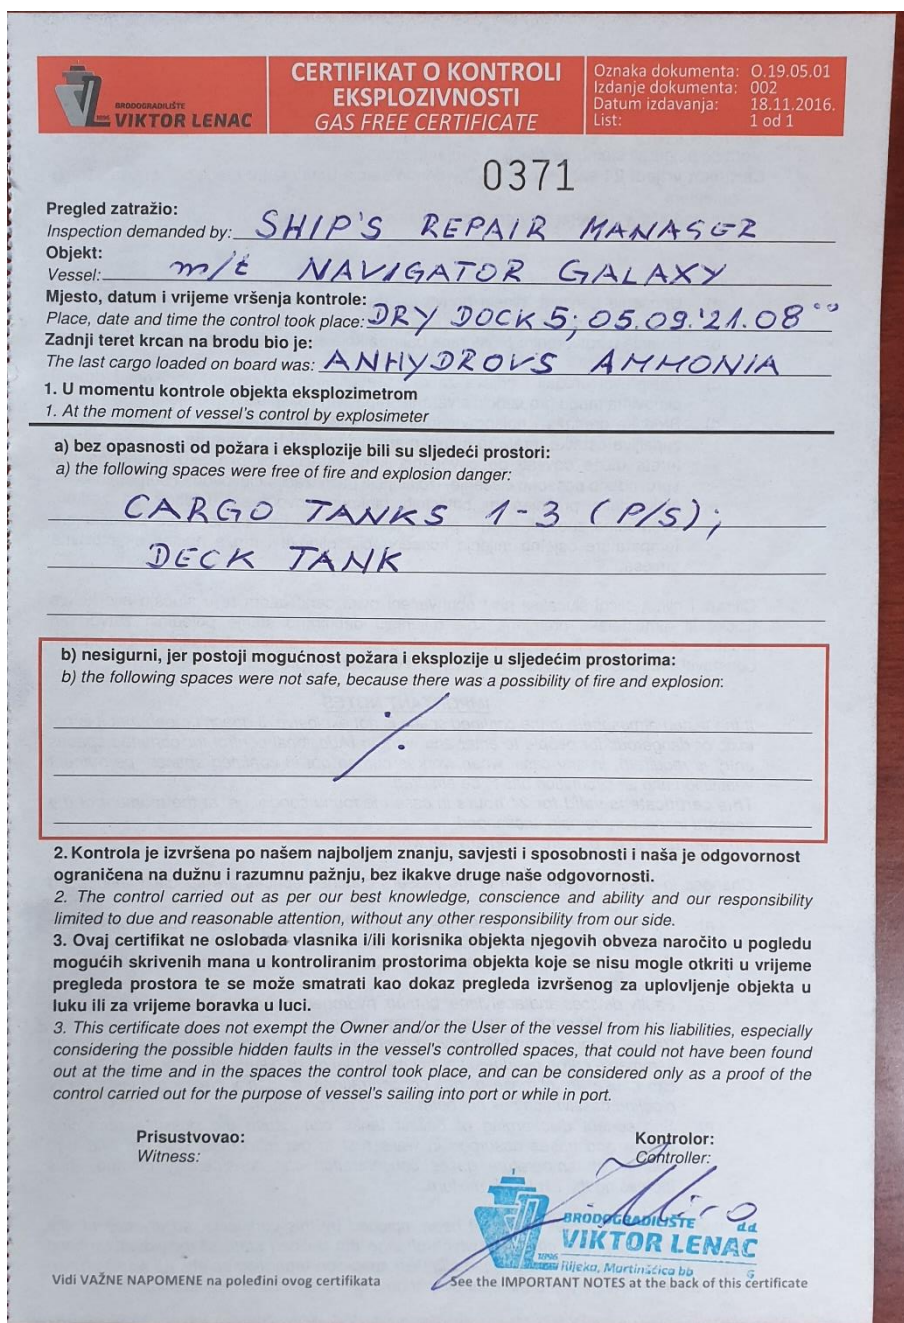 BRODOGRADILIŠTE
VIKTOR LENAC
1896
CERTIFIKAT O KONTROLI
EKSPLOZIVNOSTI
GAS FREE CERTIFICATE
Oznaka dokumenta: O.19.05.01
Izdanje dokumenta: 002
Datum izdavanja: 18.11.2016.
List: 1 od 1
0371
Pregled zatražio:
Inspection demanded by: SHIP'S REPAIR MANAGER
Objekt:
Vessel: m/t NAVIGATOR GALAXY
Mjesto, datum i vrijeme vršenja kontrole:
Place, date and time the control took place: DRY DOCK 5; 05.09.'21. 08⁰⁰
Zadnji teret krcan na brodu bio je:
The last cargo loaded on board was: ANHYDROUS AMMONIA
1. U momentu kontrole objekta eksplozimetrom
1. At the moment of vessel's control by explosimeter
a) bez opasnosti od požara i eksplozije bili su sljedeći prostori:
a) the following spaces were free of fire and explosion danger:
CARGO TANKS 1-3 (P/S);
DECK TANK
b) nesigurni, jer postoji mogućnost požara i eksplozije u sljedećim prostorima:
b) the following spaces were not safe, because there was a possibility of fire and explosion:
2. Kontrola je izvršena po našem najboljem znanju, savjesti i sposobnosti i naša je odgovornost
ograničena na dužnu i razumnu pažnju, bez ikakve druge naše odgovornosti.
2. The control carried out as per our best knowledge, conscience and ability and our responsibility
limited to due and reasonable attention, without any other responsibility from our side.
3. Ovaj certifikat ne oslobada vlasnika i/ili korisnika objekta njegovih obveza naročito u pogledu
mogućih skrivenih mana u kontroliranim prostorima objekta koje se nisu mogle otkriti u vrijeme
pregleda prostora te se može smatrati kao dokaz pregleda izvršenog za uplovljenje objekta u
luku ili za vrijeme boravka u luci.
3. This certificate does not exempt the Owner and/or the User of the vessel from his liabilities, especially
considering the possible hidden faults in the vessel's controlled spaces, that could not have been found
out at the time and in the spaces the control took place, and can be considered only as a proof of the
control carried out for the purpose of vessel's sailing into port or while in port.
Prisustvovao:
Witness:
Kontrolor:
Controller:
BRODOGRADILIŠTE d.d.
VIKTOR LENAC
Rijeka, Martinšćica bb 6
Vidi VAŽNE NAPOMENE na poleđini ovog certifikata
See the IMPORTANT NOTES at the back of this certificate